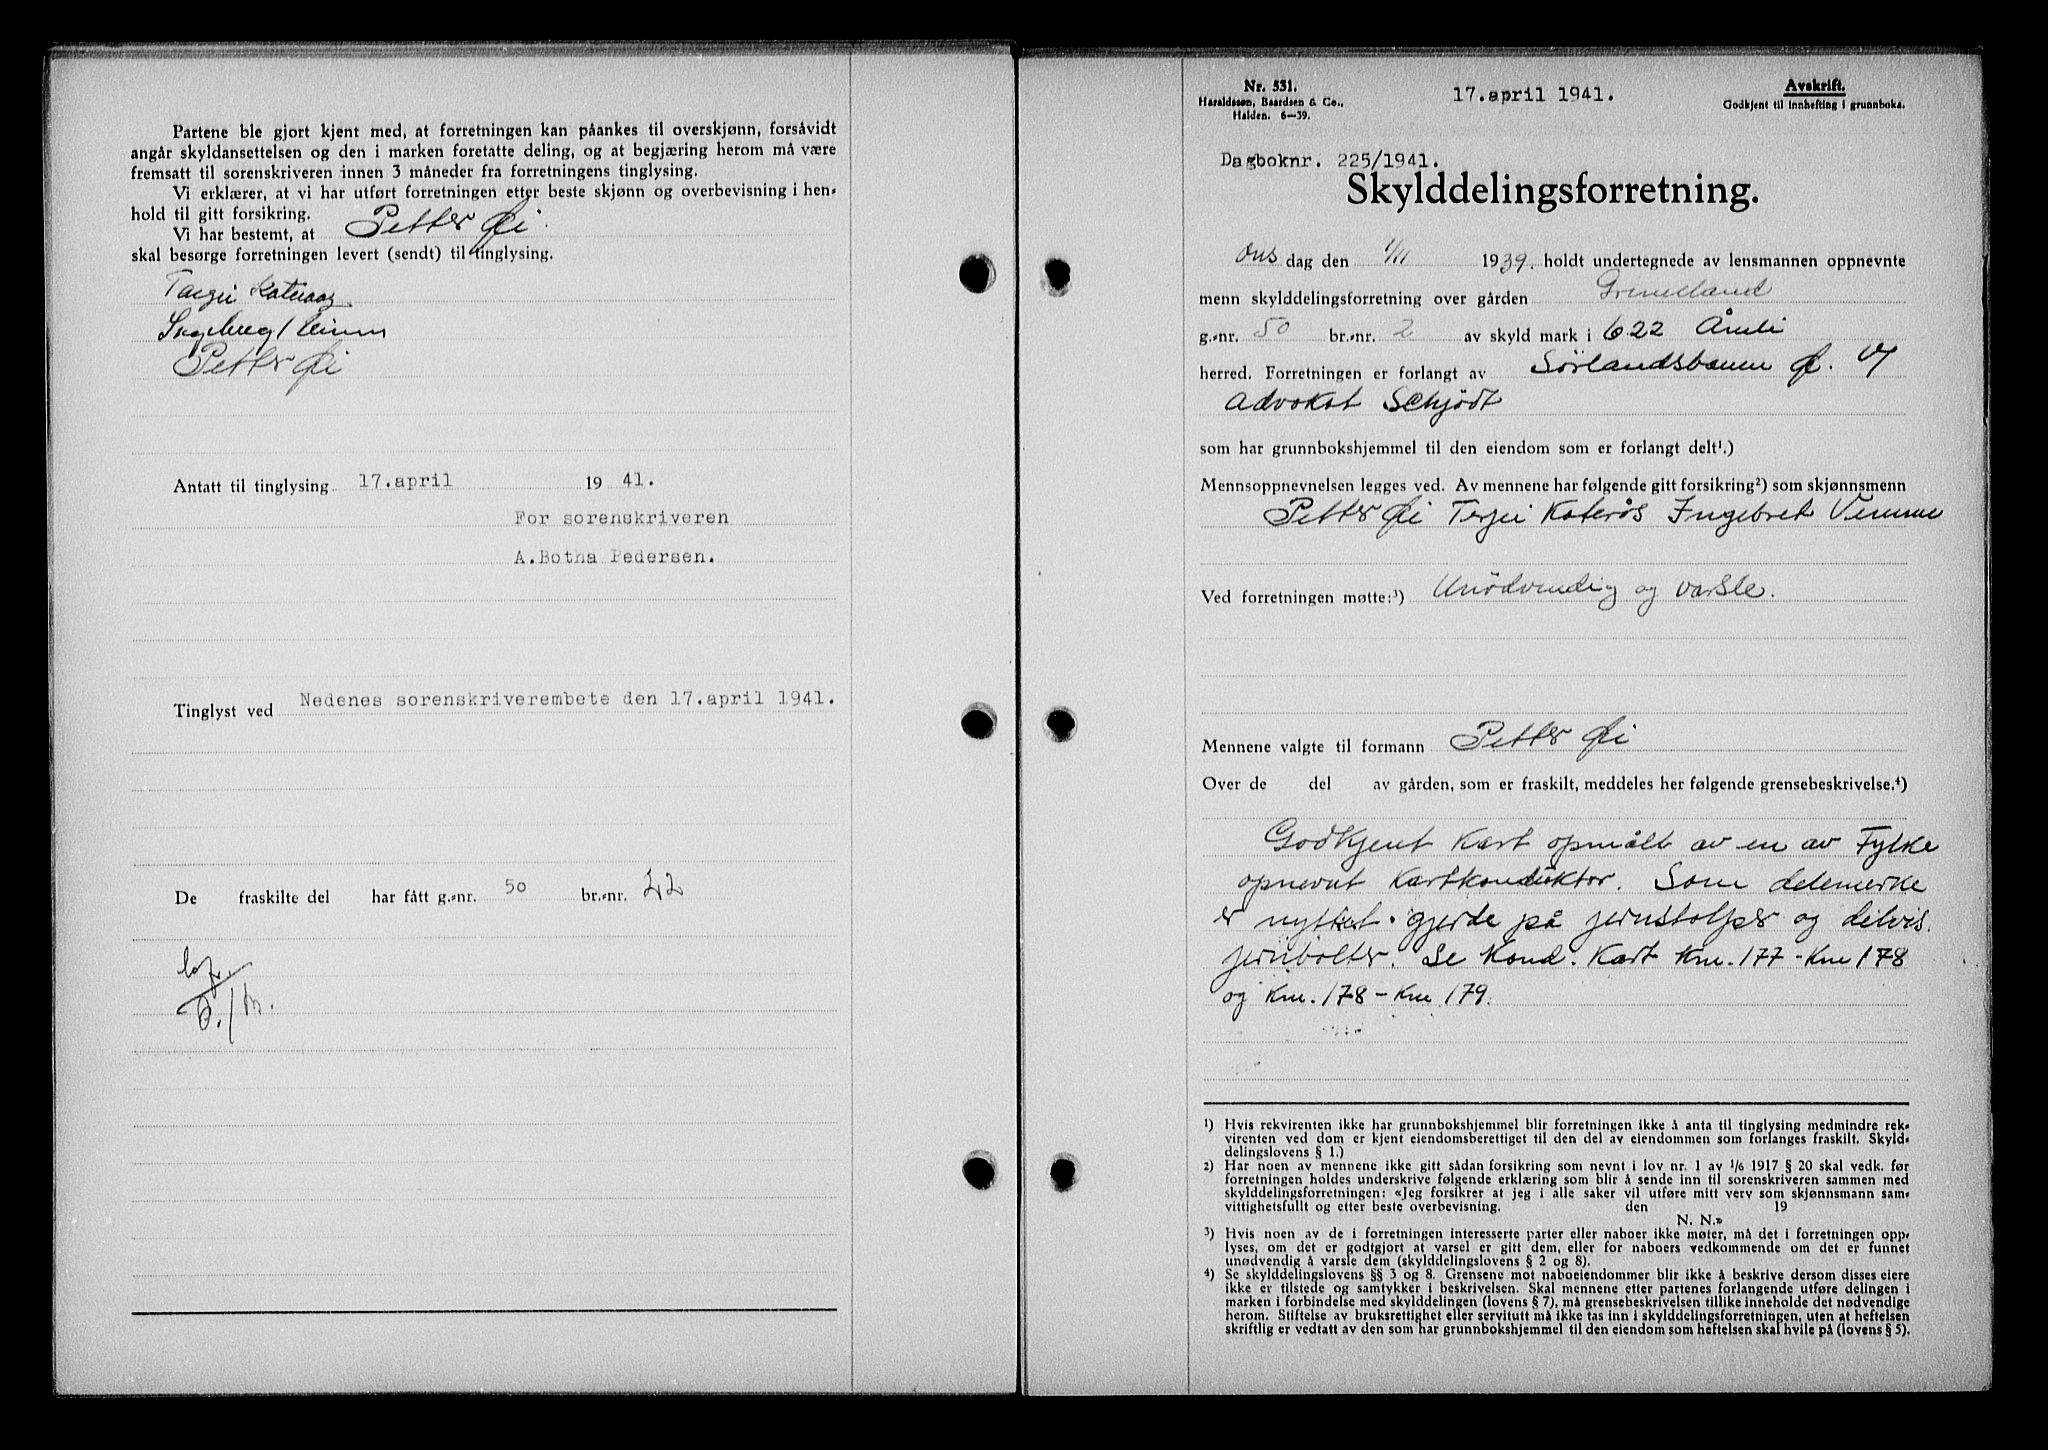 Partene ble gjort kjent med, at forretningen kan påankes til overskjønn, forsåvidt
angår skyldansettelsen og den i marken foretatte deling, og at begjæring herom må være
fremsatt til sorenskriveren innen 3 måneder fra forretningens tinglysing.
Vi erklærer, at vi har utført forretningen etter beste skjønn og overbevisning i hen-
hold til gitt forsikring.
Vi har bestemt, at Petter Øi
skal besørge forretningen levert (sendt) til tinglysing.
Petter Øi
Antatt til tinglysing 17.april 19 41.
For sorenskriveren
A.Botha Pedersen.
Tinglyst ved Nedenes sorenskriverembete den 17.april 1941.
De fraskilte del har fått g.-nr. 50 br.-nr. 22
Nr. 531.
Haraldssøn, Baardsen & Co.,
Halden. 6—39.
17.april 1941.
Avskrift.
Godkjent til innhefting i grunnboka.
Dagboknr. 225/1941.
Skylddelingsforretning.
Ons dag den 1/11 1939. holdt undertegnede av lensmannen oppnevnte
menn skylddelingsforretning over gården
g.-nr. 50 br.-nr. 2 av skyld mark i 622 Åmli
herred. Forretningen er forlangt av Sørlandsbanen Ø. v/
Advokat Schjödt
som har grunnbokshjemmel til den eiendom som er forlangt delt¹.)
Mennsoppnevnelsen legges ved. Av mennene har følgende gitt forsikring²) som skjønnsmenn
Petter Øi Terjei Katerås Ingebret Vimme
Ved forretningen møtte:³) Unödvendig og varsle.
Mennene valgte til formann Petter Øi
Over de del av gården, som er fraskilt, meddeles her følgende grensebeskrivelse.⁴)
Godkjent Kart opmålt av en av Fylke
opnevnt Kartkonduktor. Som delemerke
er nyttet gjerde på jernstolper og delvis
jernbolter. Se Kond. Kart Km. 177 - Km 178
og Km. 178 - Km 179.
¹) Hvis rekvirenten ikke har grunnbokshjemmel blir forretningen ikke å anta til tinglysing medmindre rek-
virenten ved dom er kjent eiendomsberettiget til den del av eiendommen som forlanges fraskilt. Skyld-
delingslovens § 1.)
²) Har noen av mennene ikke gitt sådan forsikring som nevnt i lov nr. 1 av 1/6 1917 § 20 skal vedk. før
forretningen holdes underskrive følgende erklæring som blir å sende inn til sorenskriveren sammen med
skylddelingsforretningen: «Jeg forsikrer at jeg i alle saker vil utføre mitt verv som skjønnsmann sam-
vittighetsfullt og etter beste overbevisning. den 19
N. N.»
³) Hvis noen av de i forretningen interesserte parter eller naboer ikke møter, må det i forretningen opp-
lyses, om det er godtgjort at varsel er gitt dem, eller for naboers vedkommende om det er funnet
unødvendig å varsle dem (skylddelingslovens § 2 og 8).
⁴) Se skylddelingslovens §§ 3 og 8. Grensene mot naboeiendommer blir ikke å beskrive dersom disses eiere
ikke er tilstede og samtykker i beskrivelsen. Skal mennene etter partenes forlangende utføre delingen i
marken i forbindelse med skylddelingen (lovens § 7), må grensebeskrivelsen tillike inneholde det nødvendige
herom. Stiftelse av bruksrettighet eller servitutt må ikke tas inn i skylddelingsforretningen, uten at heftelsen
skriftlig er vedtatt av den som har grunnbokshjemmel til den eiendom som heftelsen skal hvile på (lovens § 5).